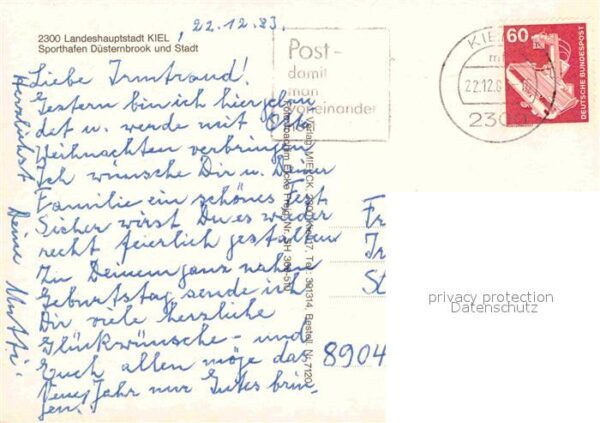 22.12.83.
2300 Landeshauptstadt KIEL
Sporthafen Düsternbrook und Stadt
Liebe Irmtraud!
Gestern bin ich hier gelan
det u. werde mit
Weihnachten verbringen
Ich wünsche Dir u. Deiner
Familie ein schönes Fest
Sicher wirst Du es wieder
recht feierlich gestalten
Zu Deinem ganz nahen
Geburtstag sende ich
Dir viele herzliche
Glückwünsche - und
Euch allen möge das
Neue Jahr nur Gutes brin-
gen.
Herzlichst Deine Mutti.
Post-
damit
man
voneinander
KIEL
22.12.8
2300
60
DEUTSCHE BUNDESPOST
Verlag MIERCK, 2300 Kiel 17, Tel. 301314, Bestell. Nr. 7120
Fr
Ir
St
8904
privacy protection
Datenschutz